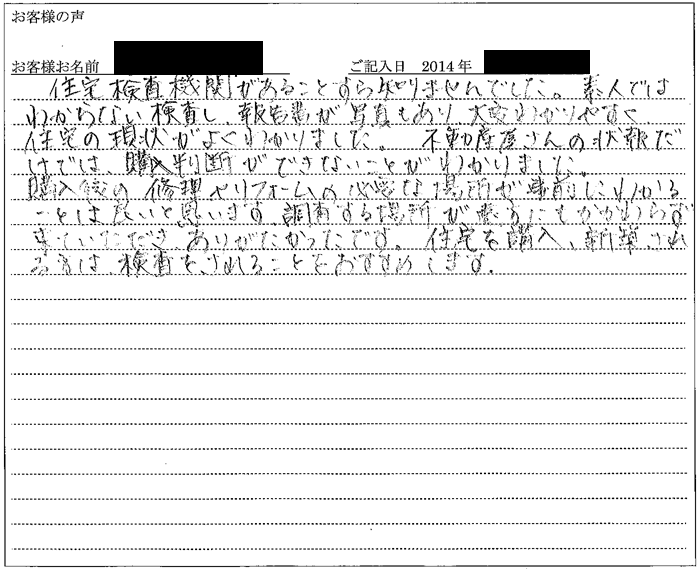 お客様の声
お客様お名前 ご記入日 2014年
住宅検査機関があることすら知りませんでした。素人では
わからない検査し、報告書が写真もあり、大変わかりやすく
住宅の現状がよくわかりました。 不動産屋さんの状報だ
けでは、購入判断ができないことがわかりました。
購入後の修理やリフォームの必要な場所が事前にわかる
ことは良いと思います。調査する場所が悪るにもかかわらず
来ていただき ありがたかったです。 住宅を購入、新築され
る方は、検査をされることをおすすめします。